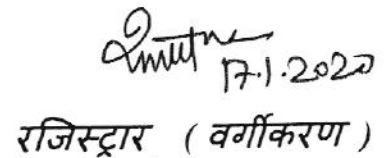 17.1.2020
रजिस्ट्रार ( वर्गीकरण )